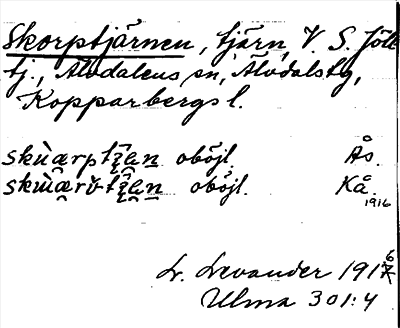 Skorptjärnen, tjärn, V. S. Jöll
tj., Älvdalens sn, Älvdals tg,
Kopparbergs l.
skùærptjen oböjl. Ås.
skùærŭ-tjen oböjl. Kå.
1916
L. Levander 1916
Ulma 301:4